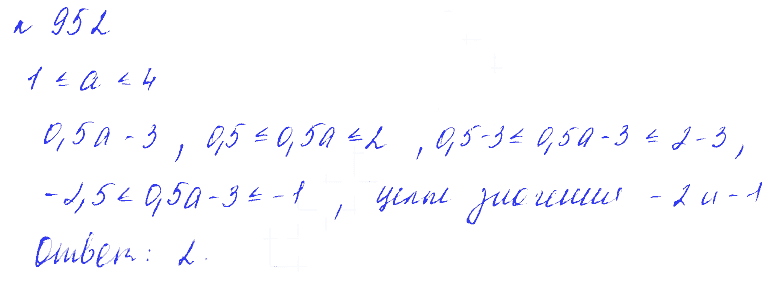 № 952
1 ≤ a ≤ 4
0,5a - 3 , 0,5 ≤ 0,5a ≤ 2 , 0,5-3 ≤ 0,5a-3 ≤ 2-3,
-2,5 ≤ 0,5a-3 ≤ -1 , целые значения -2 и -1
Ответ: 2.